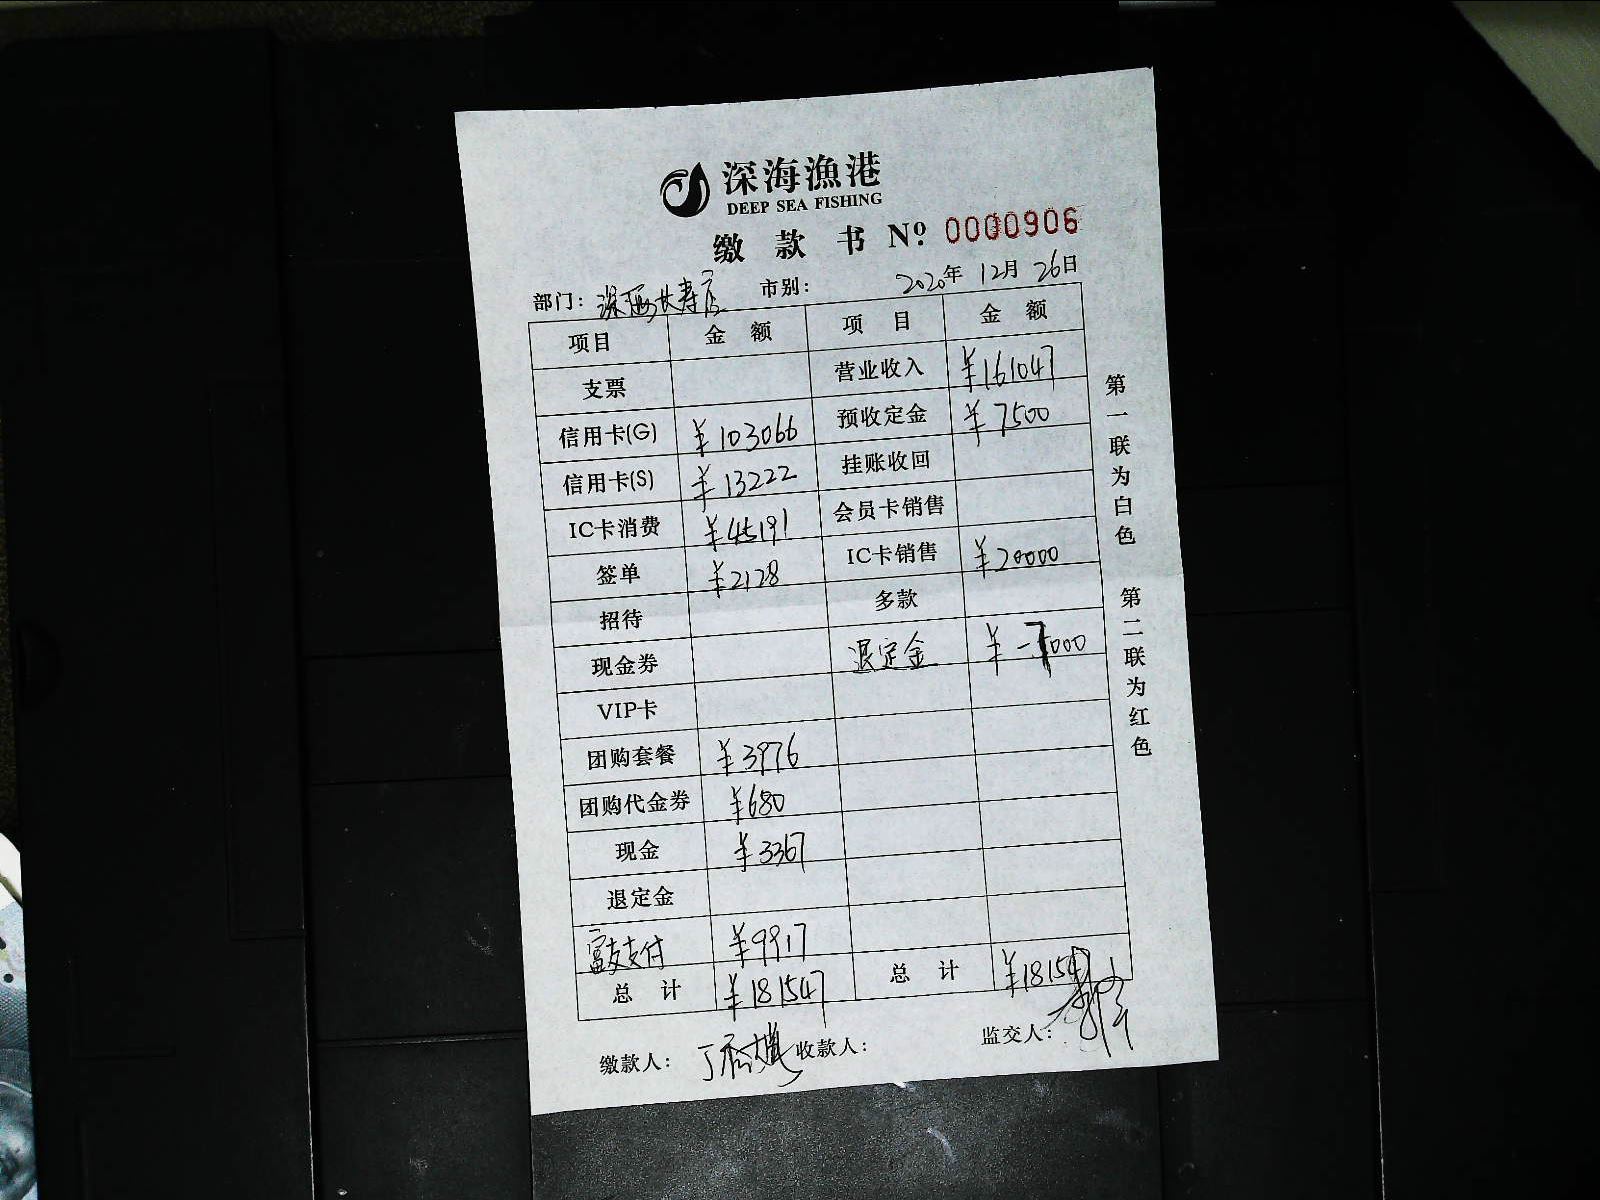 深海漁港
DEEP SEA FISHING
缴 款 书 Nº: 0000906
部门: 深海长寿店 市别: 2020年 12月 26日
项目 金 额 项 目 金 额
支票 营业收入 ¥161047
信用卡(G) ¥103066 预收定金 ¥7500
信用卡(S) ¥13222 挂账收回
IC卡消费 ¥45191 会员卡销售
签单 ¥2128 IC卡销售 ¥20000
招待 多款
现金券 退定金 ¥-7000
VIP卡
团购套餐 ¥3976
团购代金券 ¥680
现金 ¥3367
退定金
富友支付 ¥9917
总 计 ¥181547 总 计 ¥181547
缴款人: 丁 收款人: 监交人:
第一联为白色 第二联为红色